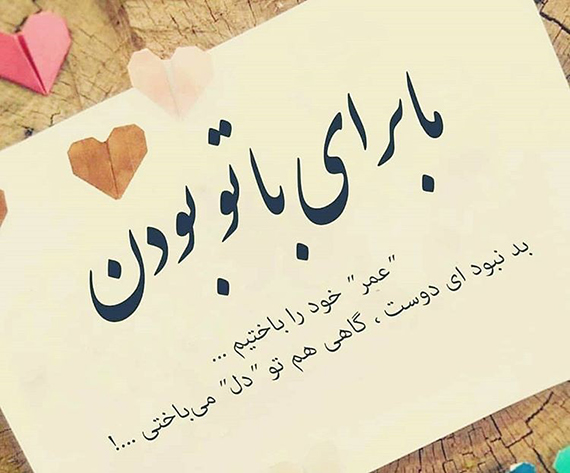 ما برای با تو بودن
"عمر" خود را باختیم ...
بد نبود ای دوست ، گاهی هم تو "دل" می‌باختی ...!